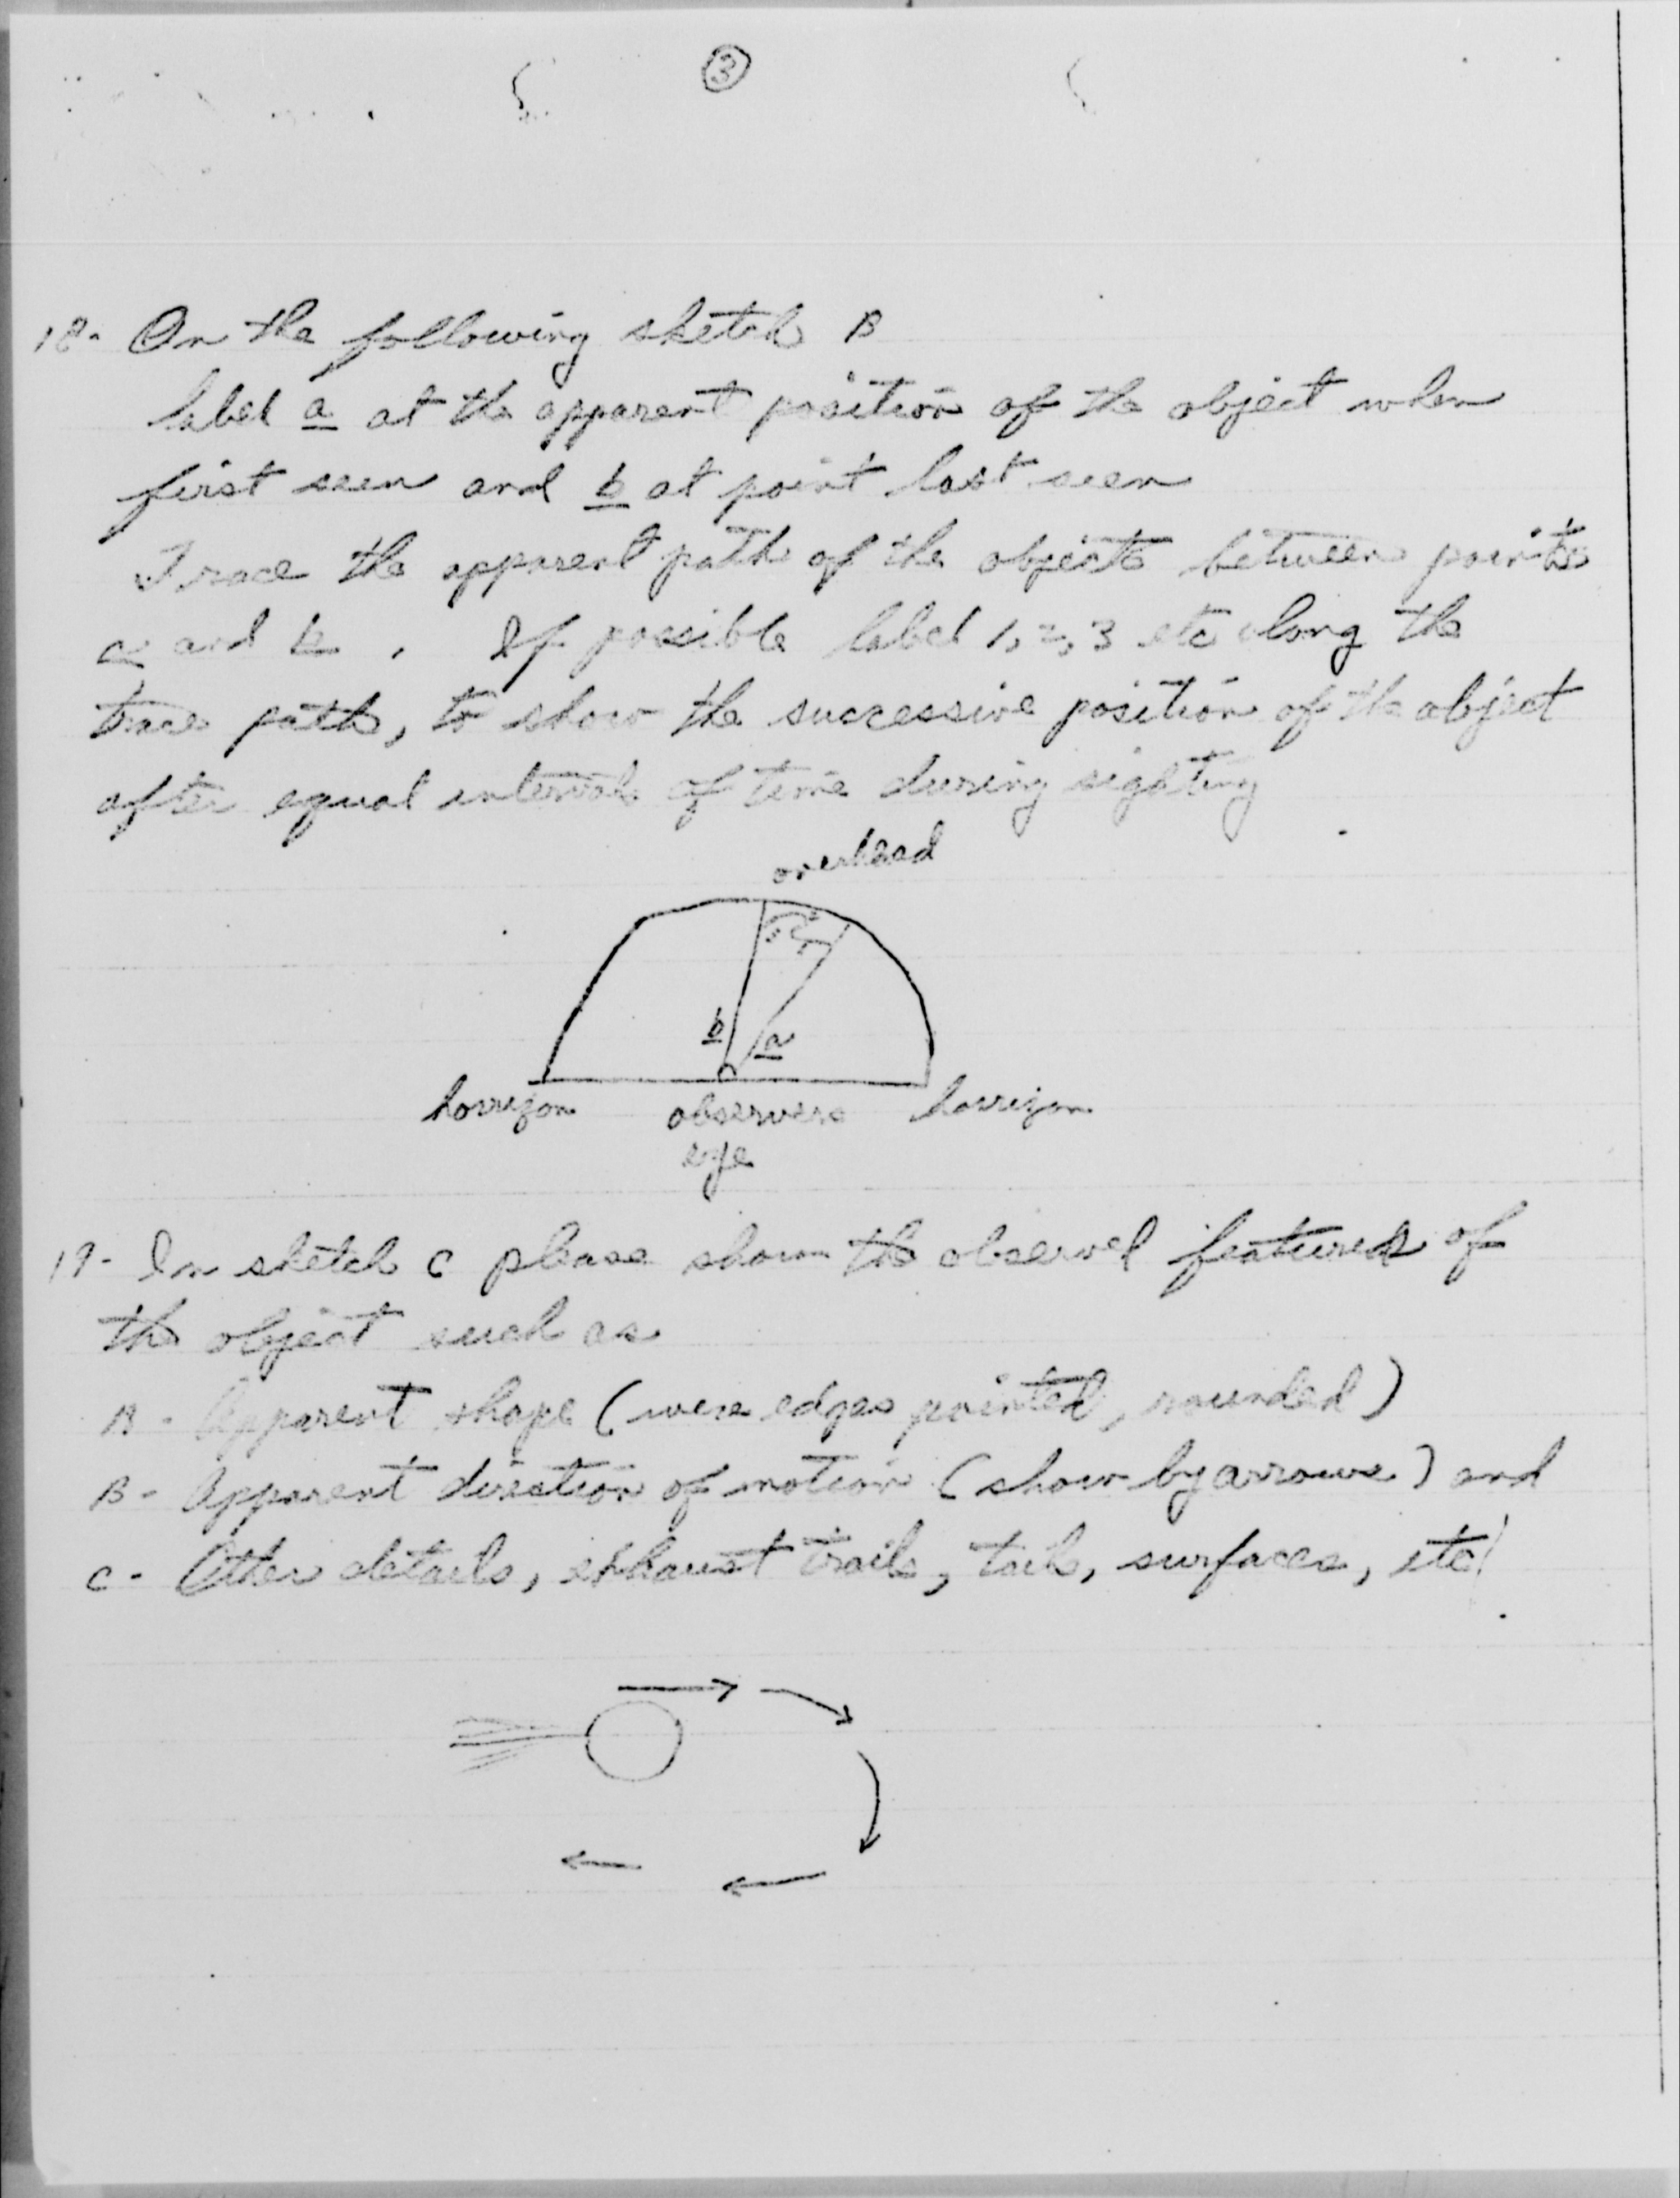 3
18- On the following sketch B
label a at the apparent position of the object when
first seen and b at point last seen
Trace the apparent path of the objects between points
a and b . If possible label 1, 2, 3 etc along the
trace path, to show the successive position of the object
after equal intervals of time during sighting
overhead
b a
horrizon observers horrizon
eye
19- In sketch C please show the observed features of
the object such as
A- Apparent shape (were edges pointed, rounded)
B- Apparent direction of motion (show by arrows) and
C- Other details, exhaust trails, tails, surfaces, etc